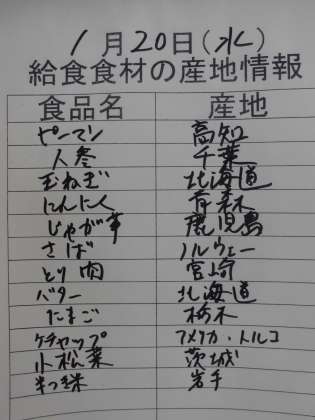 1月20日(水)
給食食材の産地情報
食品名 産地
ピーマン 高知
人参 千葉
玉ねぎ 北海道
にんにく 青森
じゃが芋 鹿児島
さば ノルウェー
とり肉 宮崎
バター 北海道
たまご 栃木
ケチャップ アメリカ・トルコ
小松菜 茨城
半つき米 岩手